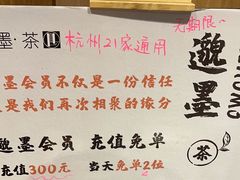 墨·茶
杭州21家通用
无期限~
邈墨
茶
墨会员不仅是一份信任
是我们再次相聚的缘分
邈墨会员 充值免单
充值300元 当天免单2位